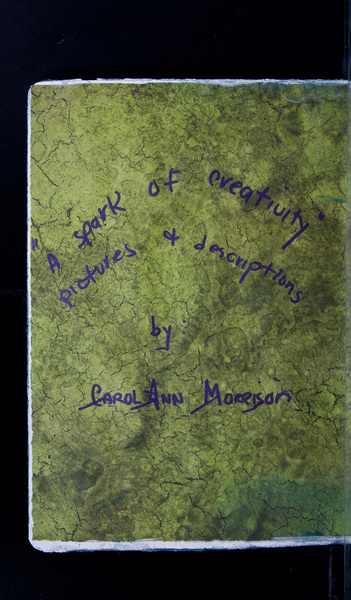 "A spark of creativity"
pictures & descriptions
by
Carol Ann Morrison